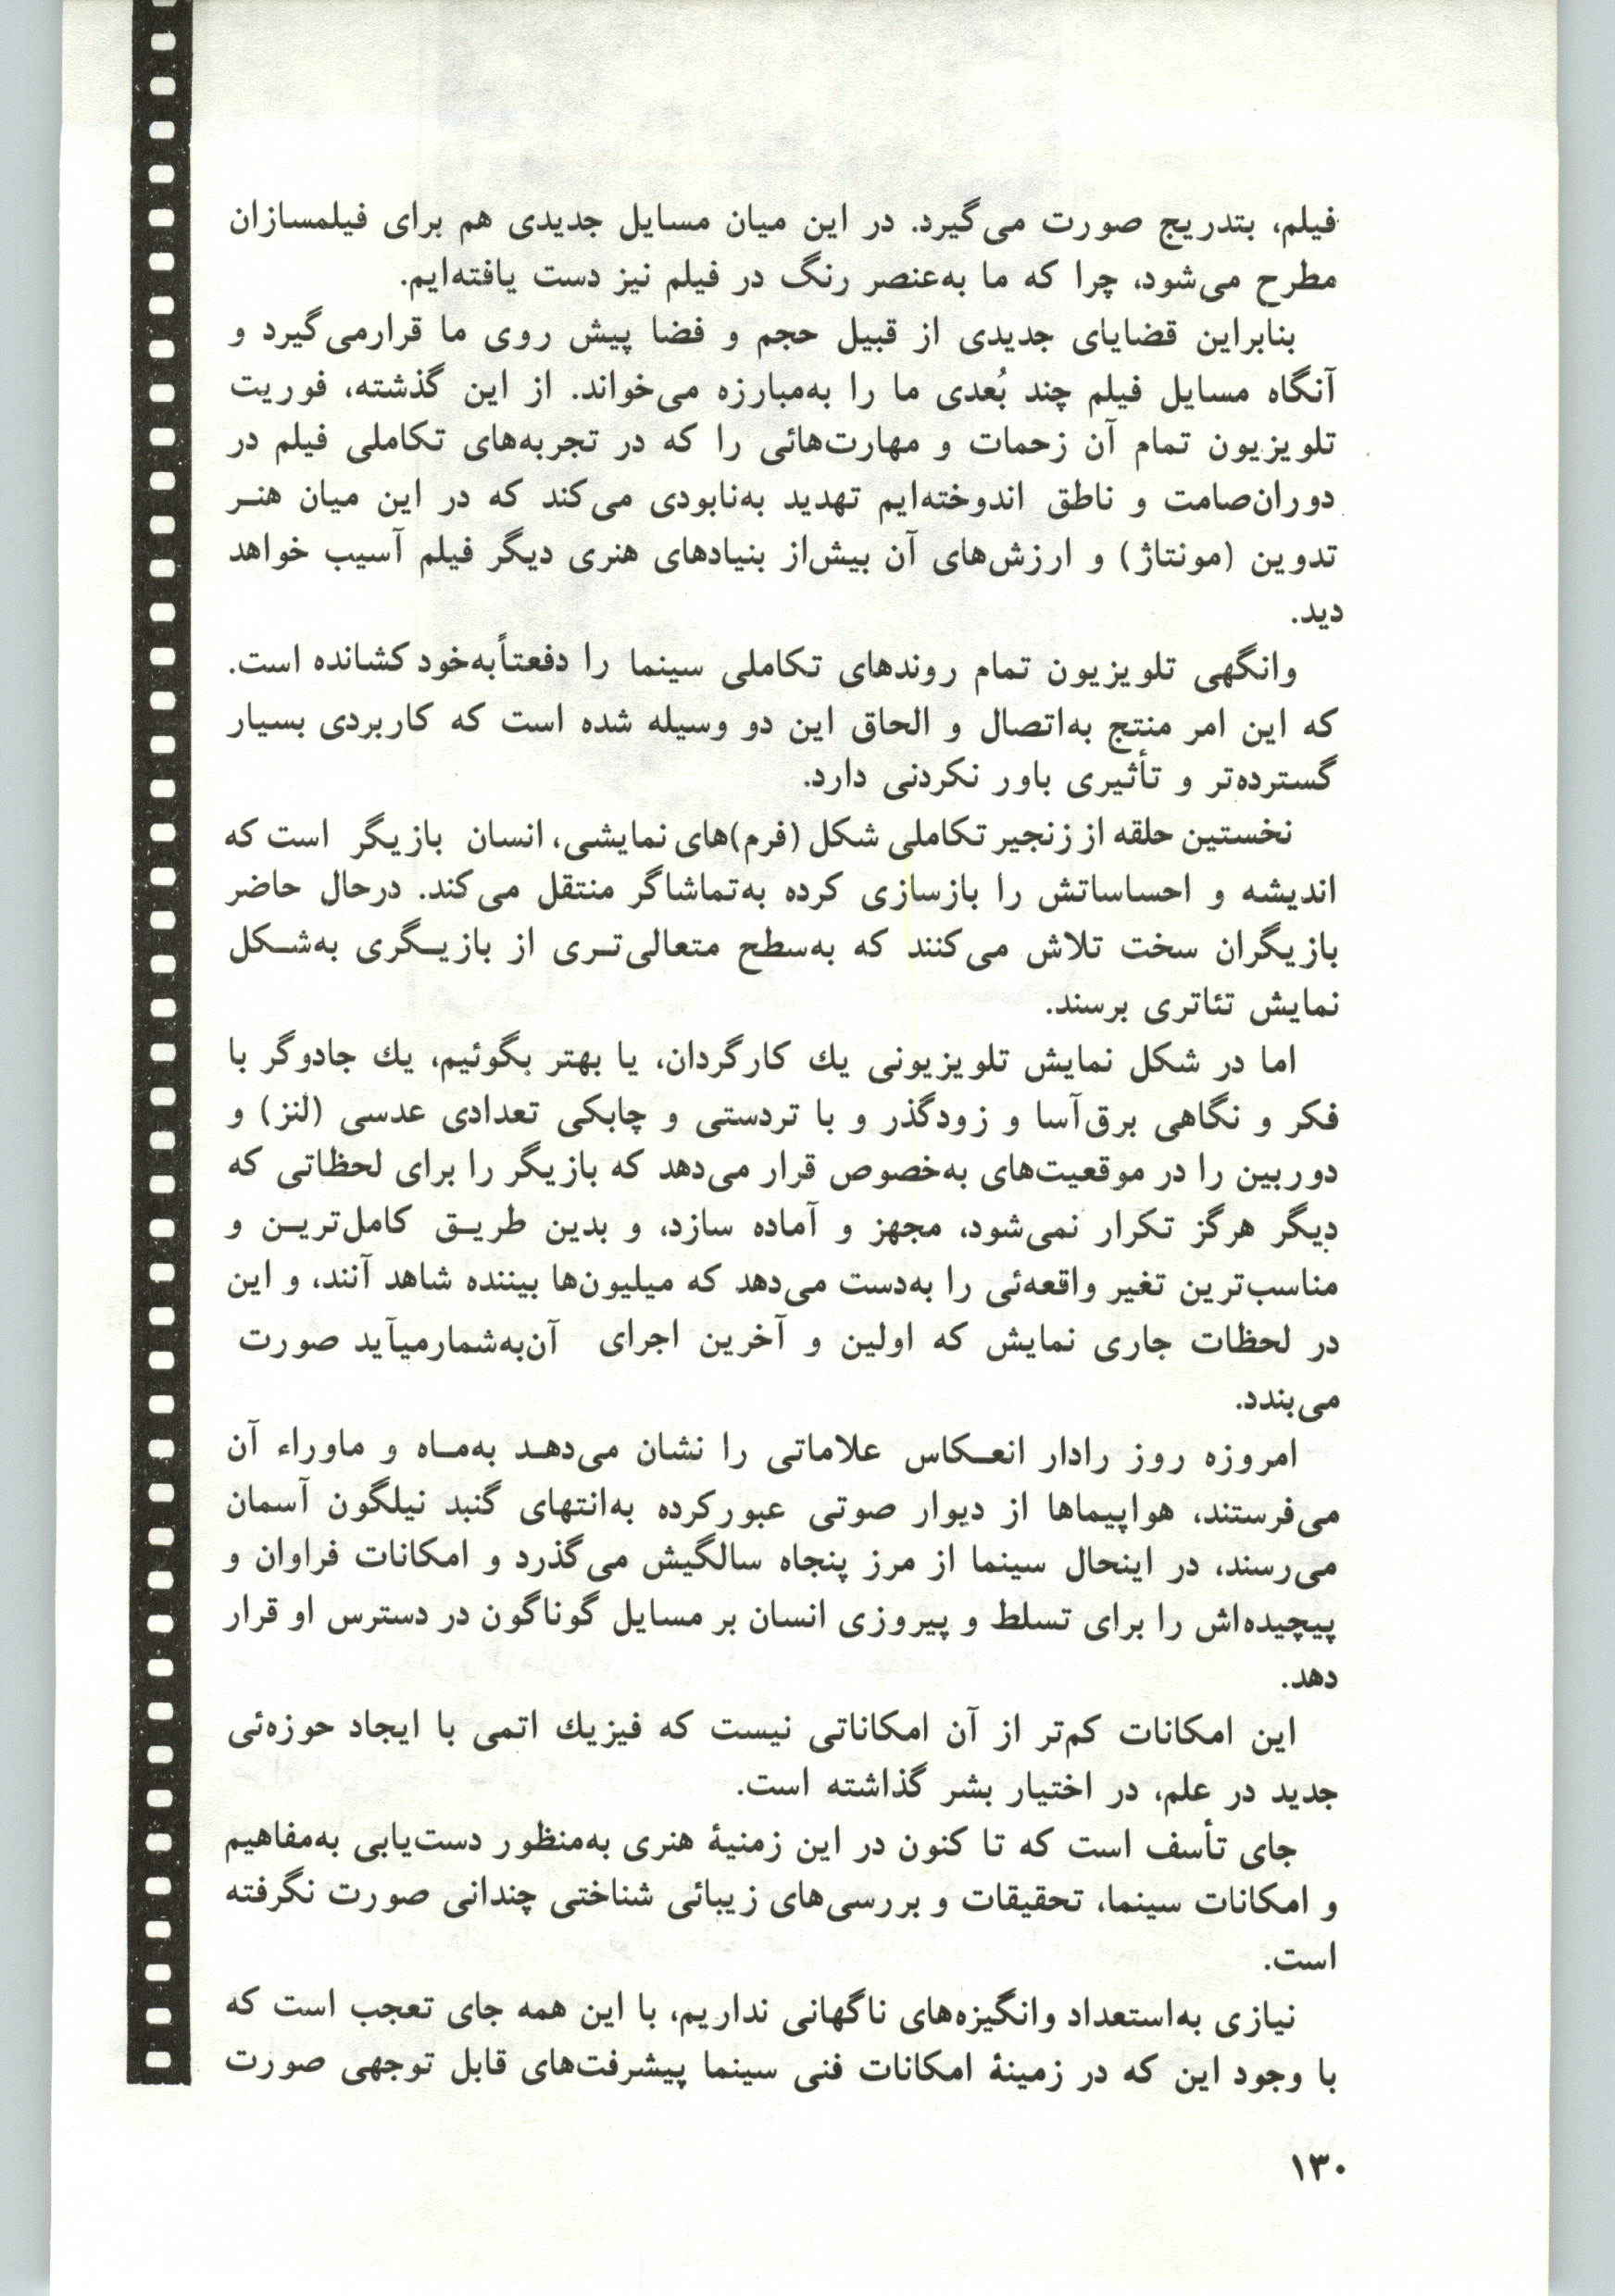 فیلم، بتدریج صورت می‌گیرد. در این میان مسایل جدیدی هم برای فیلمسازان
مطرح می‌شود، چرا که ما به‌عنصر رنگ در فیلم نیز دست یافته‌ایم.
بنابراین قضایای جدیدی از قبیل حجم و فضا پیش روی ما قرارمی‌گیرد و
آنگاه مسایل فیلم چند بُعدی ما را به‌مبارزه می‌خواند. از این گذشته، فوریت
تلویزیون تمام آن زحمات و مهارت‌هائی را که در تجربه‌های تکاملی فیلم در
دوران‌صامت و ناطق اندوخته‌ایم تهدید به‌نابودی می‌کند که در این میان هنـر
تدوین (مونتاژ) و ارزش‌های آن بیش‌از بنیادهای هنری دیگر فیلم آسیب خواهد
دید.
وانگهی تلویزیون تمام روندهای تکاملی سینما را دفعتاًبه‌خود کشانده است.
که این امر منتج به‌اتصال و الحاق این دو وسیله شده است که کاربردی بسیار
گسترده‌تر و تأثیری باور نکردنی دارد.
نخستین حلقه از زنجیر تکاملی شکل (فرم)های نمایشی، انسان بازیگر است که
اندیشه و احساساتش را بازسازی کرده به‌تماشاگر منتقل می‌کند. درحال حاضر
بازیگران سخت تلاش می‌کنند که به‌سطح متعالی‌تـری از بازیـگری به‌شـکل
نمایش تئاتری برسند.
اما در شکل نمایش تلویزیونی یك کارگردان، یا بهتر بگوئیم، یك جادوگر با
فکر و نگاهی برق‌آسا و زودگذر و با تردستی و چابکی تعدادی عدسی (لنز) و
دوربین را در موقعیت‌های به‌خصوص قرار می‌دهد که بازیگر را برای لحظاتی که
دیگر هرگز تکرار نمی‌شود، مجهز و آماده سازد، و بدین طریـق کامل‌تریـن و
مناسب‌ترین تغیر واقعه‌ئی را به‌دست می‌دهد که میلیون‌ها بیننده شاهد آنند، و این
در لحظات جاری نمایش که اولین و آخرین اجرای آن‌به‌شمارمیآید صورت
می‌بندد.
امروزه روز رادار انعـکاس علاماتی را نشان می‌دهـد به‌مـاه و ماوراء آن
می‌فرستند، هواپیماها از دیوار صوتی عبورکرده به‌انتهای گنبد نیلگون آسمان
می‌رسند، در اینحال سینما از مرز پنجاه سالگیش می‌گذرد و امکانات فراوان و
پیچیده‌اش را برای تسلط و پیروزی انسان بر مسایل گوناگون در دسترس او قرار
دهد.
این امکانات کم‌تر از آن امکاناتی نیست که فیزیك اتمی با ایجاد حوزه‌ئی
جدید در علم، در اختیار بشر گذاشته است.
جای تأسف است که تا کنون در این زمنیهٔ هنری به‌منظور دست‌یابی به‌مفاهیم
و امکانات سینما، تحقیقات و بررسی‌های زیبائی شناختی چندانی صورت نگرفته
است.
نیازی به‌استعداد وانگیزه‌های ناگهانی نداریم، با این همه جای تعجب است که
با وجود این که در زمینهٔ امکانات فنی سینما پیشرفت‌های قابل توجهی صورت
۱۳۰